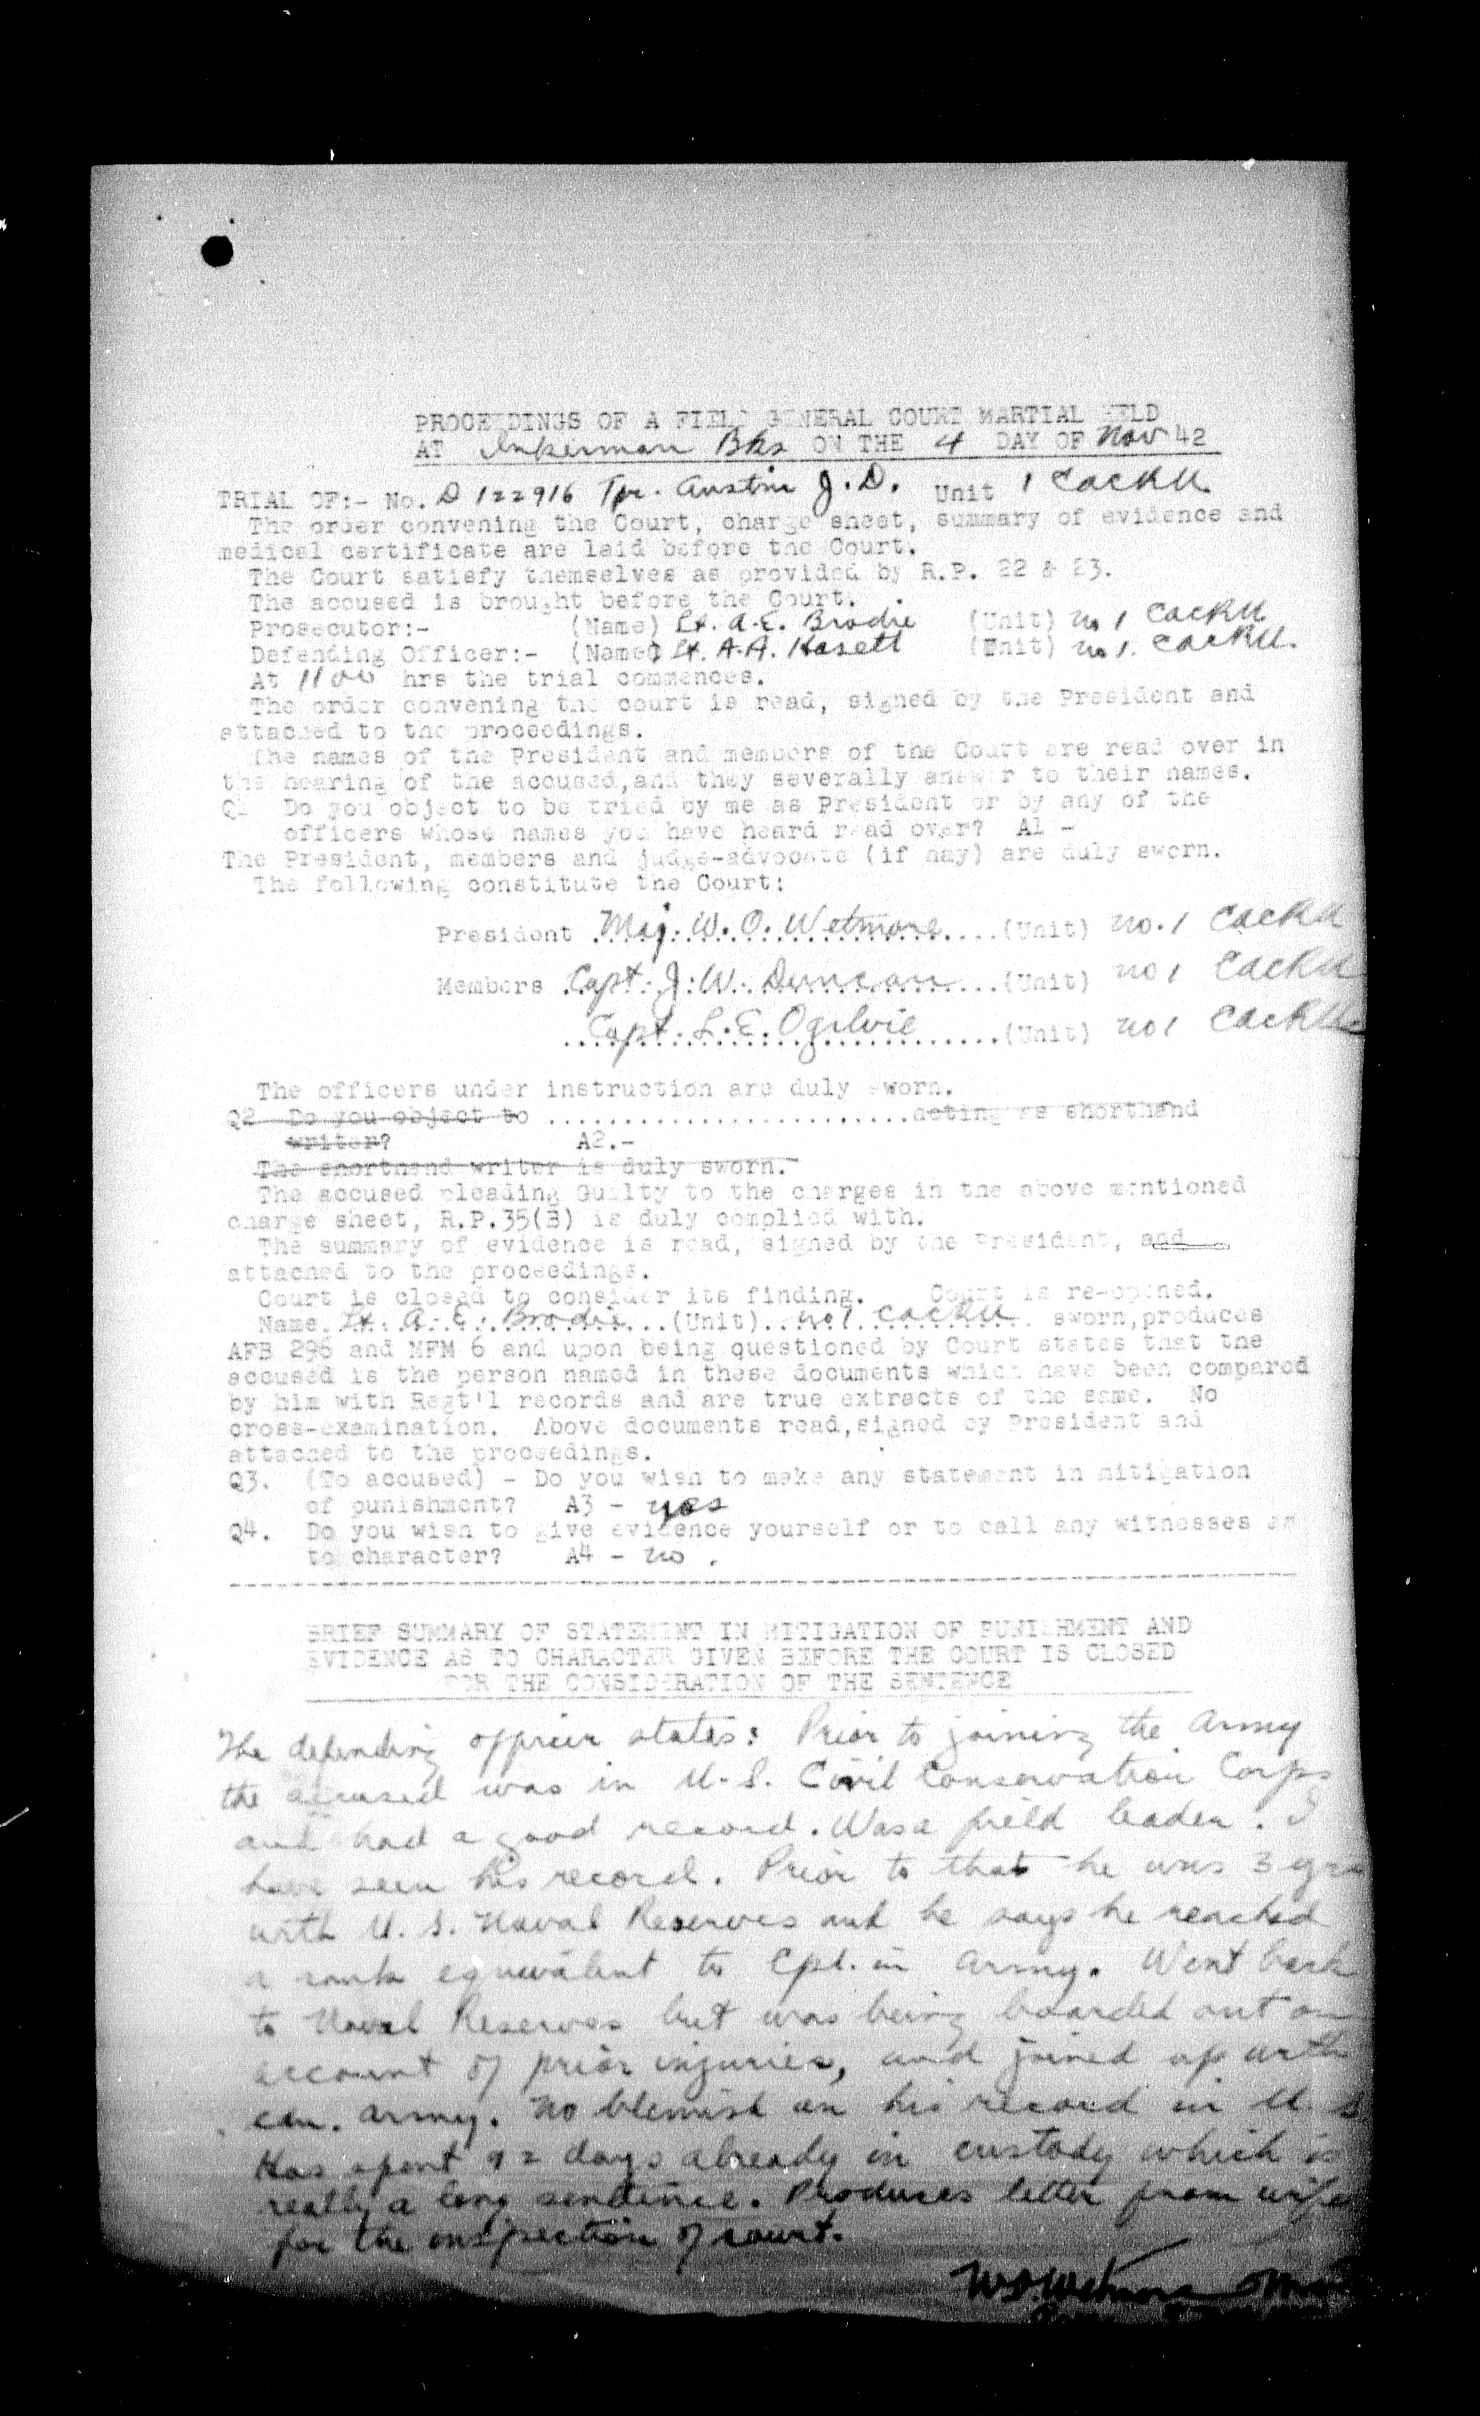 PROCEEDINGS OF A FIELD GENERAL COURT MARTIAL HELD
AT Inkerman Bks ON THE 4 DAY OF Nov 42
TRIAL OF:- No. D 122916 Tpr. Austin J.D. Unit 1 CACRU
The order convening the Court, charge sheet, summary of evidence and
medical certificate are laid before the Court.
The Court satisfy themselves as provided by R.P. 22 & 23.
The accused is brought before the Court.
Prosecutor:- (Name) Lt. A.E. Brodie (Unit) no 1 CACRU
Defending Officer:- (Name) Lt. A.A. (Unit) no 1. CACRU.
At 1100 hrs the trial commences.
The order convening the court is read, signed by the President and
attached to the proceedings.
The names of the President and members of the Court are read over in
the hearing of the accused, and they severally answer to their names.
Q1 Do you object to be tried by me as President or by any of the
officers whose names you have heard read over? A1 -
The President, members and judge-advocate (if nay) are duly sworn.
The following constitute the Court:
President Maj. W. O. Wetmore (Unit) no. 1 CACRU
Members Capt. J. W. Duncan (Unit) no 1 CACRU
Capt. L. E. Ogilvie (Unit) no 1 CACRU
The officers under instruction are duly sworn.
Q2 Do you object to ........................acting as shorthand
writer? A2.-
The shorthand writer is duly sworn.
The accused pleading Guilty to the charges in the above mentioned
charge sheet, R.P.35(B) is duly complied with.
The summary of evidence is read, signed by the President, and
attached to the proceedings.
Court is closed to consider its finding. Court is re-opened.
Name. Lt. A. E. Brodie (Unit) no 1 CACRU sworn, produces
AFB 296 and MFM 6 and upon being questioned by Court states that the
accused is the person named in these documents which have been compared
by him with Regt'l records and are true extracts of the same. No
cross-examination. Above documents read, signed by President and
attached to the proceedings.
Q3. (To accused) - Do you wish to make any statement in mitigation
of punishment? A3 - yes
Q4. Do you wish to give evidence yourself or to call any witnesses as
to character? A4 - no.
BRIEF SUMMARY OF STATEMENT IN MITIGATION OF PUNISHMENT AND
EVIDENCE AS TO CHARACTER GIVEN BEFORE THE COURT IS CLOSED
FOR THE CONSIDERATION OF THE SENTENCE
The defending officer states: Prior to joining the Army
the accused was in U.S. Civil Conservation Corps
and had a good record. Was a field leader. I
have seen his record. Prior to that he was 3 yrs
with U.S. Naval Reserves and he says he reached
a rank equivalent to Cpl. in Army. Went back
to Naval Reserves but was being boarded out on
account of prior injuries, and joined up with
can. army. No blemish on his record in U.S
Has spent 92 days already in custody which is
really a long sentence. Produces letter from wife
for the inspection of court.
W.O. Wetmore Maj